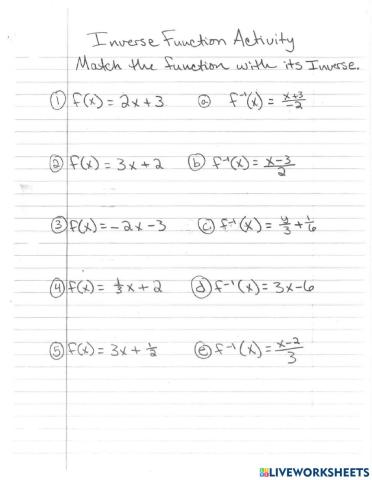 Inverse Function Activity
Match the function with its Inverse.
① f(x) = 2x + 3 ⓐ f⁻¹(x) = (x+3)/-2
② f(x) = 3x + 2 ⓑ f⁻¹(x) = (x-3)/2
③ f(x) = -2x - 3 ⓒ f⁻¹(x) = y/3 + 1/6
④ f(x) = 1/3 x + 2 ⓓ f⁻¹(x) = 3x - 6
⑤ f(x) = 3x + 1/2 ⓔ f⁻¹(x) = (x-2)/3
LIVEWORKSHEETS